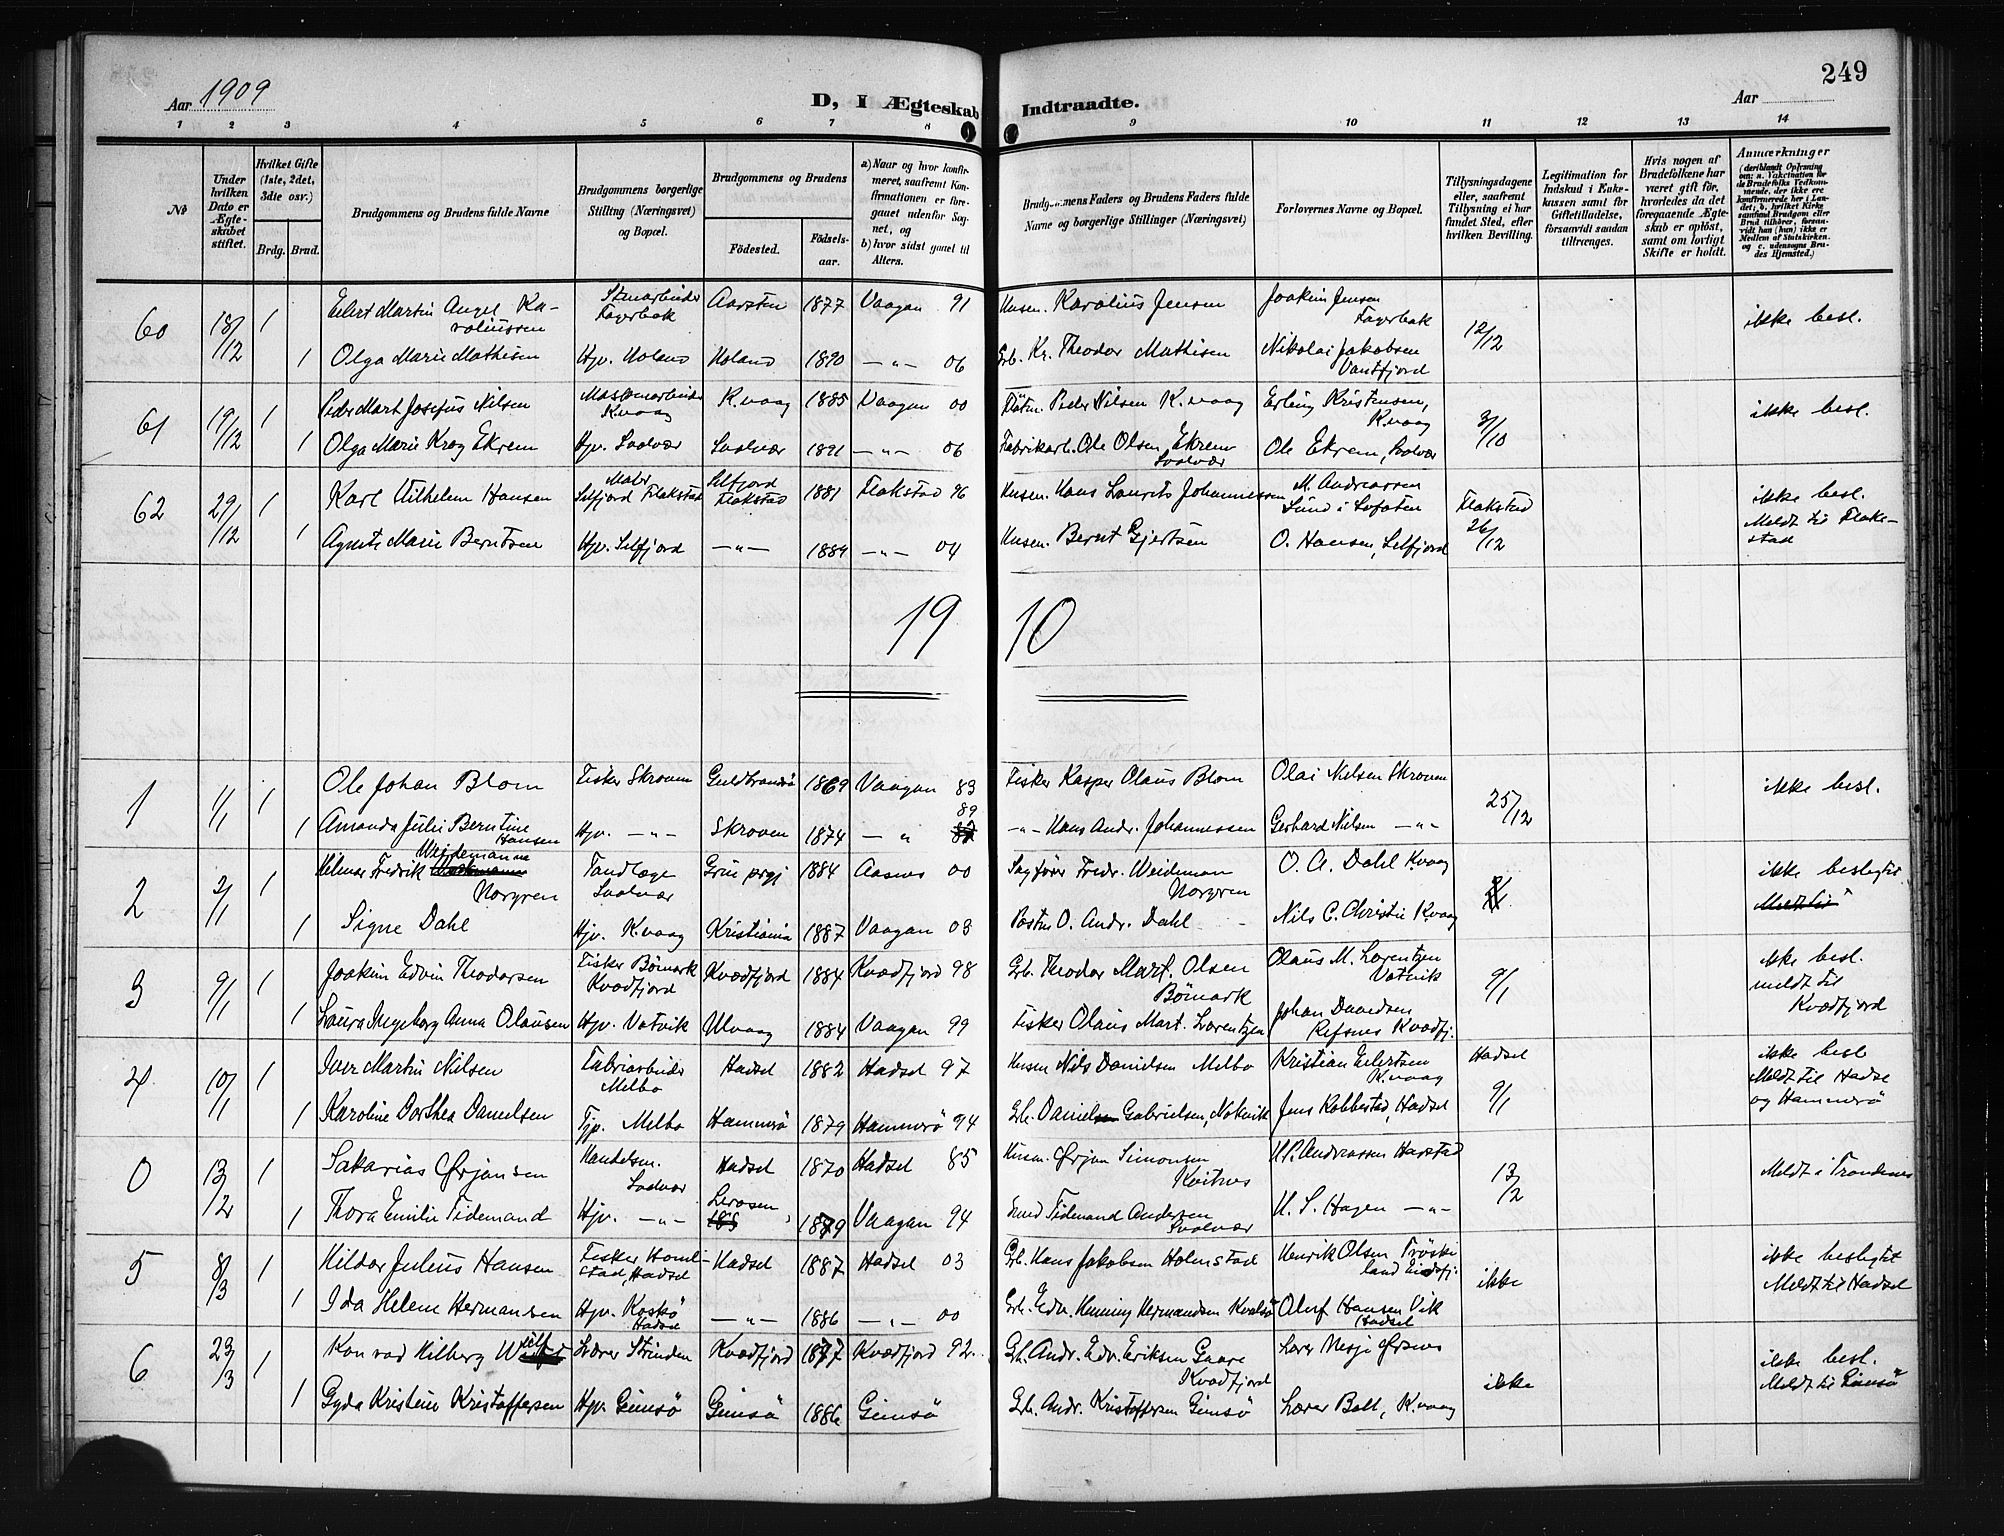 249
Aar 1909
D, I Ægteskab Indtraadte.
Aar
1 2 3 4 5 6 7 8 9 10 11 12 13 14
No
Under hvilken Dato er Ægteskabet stiftet.
Hvilket Gifte (1ste, 2det, 3die osv.)
Brdg. Brud.
Brudgommens og Brudens fulde Navne
Brudgommens borgerlige Stilling (Næringsvei) og Bopæl.
Brudgommens og Brudens
Födested. Födsels-aar.
a) Naar og hvor konfirmeret, saafremt Konfirmationen er foregaaet udenfor Sognet, og
b) hvor sidst gaaet til Alters.
Brudgommens Faders og Brudens Faders fulde Navne og borgerlige Stillinger (Næringsvei)
Forlovernes Navne og Bopæl.
Tillysningsdagene eller, saafremt Tillysning ei har fundet Sted, efter hvilken Bevilling.
Legitimation for Indskud i Enkekassen samt for Giftetilladelse, forsaavidt saadan tiltrænges.
Hvis nogen af Brudefolkene har været gift för, hvorledes da det foregaaende Ægteskab er oplöst, samt om lovligt Skifte er holdt.
Anmærkninger (deriblandt Oplysning om: a. Vakcination for de Brudefolks Vedkommende, der ikke ere konfirmerede her i Landet; b. hvilket Kirkesamfund Brudgom eller Brud tilhörer, forsaavidt han (hun) ikke er Medlem af Statskirken, og c. udensogns Brudes Hjemsted.)
60 18/12 1 Eilert Martin Angel Karoliussen Stenarbeider Fagerbak 1877 Vaagan 91 Husm. Karolius Jensen Joakim Jensen Fagerbak 12/12 ikke besl.
1 Olga Marie Mathisen Hjv. Holand Holand 1890 —"— 06 Grb. Kr. Theodor Mathisen Nikolai Jakobsen
61 19/12 1 Peder Mart Josefus Nilsen K.vaag K.vaag 1885 Vaagan 00 Peder Nilsen K.vaag Erling Kristensen, K.vaag 3/10 ikke besl.
1 Olga Marie Krog Ekrem Hjv. Svolvær Svolvær 1891 —"— 06 Fabrikarb. Ole Olsen Ekrem Svolvær Ole Ekrem, Svolvær
62 29/12 1 Karl Vilhelm Hansen Maler Selfjord Flakstad Selfjord Flakstad 1881 Flakstad 96 Husm. Hans Laurits Johannessen M. Andreassen Sund i Lofoten Flakstad 26/12 ikke besl. Meldt til Flakestad
1 Agnete Marie Berntsen Hjv. Selfjord —"— 1889 —"— 04 Husm. Bernt Gjertsen O. Hansen, Selfjord
19 10
1 1/1 1 Ole Johan Blom Fisker Skroven Guldbrandsö 1869 Vaagan 83 Fisker Kasper Olaus Blom Olai Nielsen Skroven 25/12 ikke besl.
1 Amanda Julie Berntine Hansen Hjv. —"— Skroven 1874 —" 89 —"— Hans Andr. Johannessen Gerhard Nielsen —"—
2 2/1 1 Hilmar Fredrik Weidemann Norgren Tandlæge Svolvær Grue prgj 1884 Aasnes 00 Sagförer Fredr. Weideman Norgren O. A. Dahl K.vaag ikke beslegtet
1 Signe Dahl Hjv. K.vaag Kristiania 1887 Vaagan 03 Postm O. Andr. Dahl Nils C. Christie K.vaag
3 9/1 1 Joakim Edvin Theodorsen Fisker Bömark Kvædfjord Kvædfjord 1884 Kvædfjord 98 Grb. Theodor Mart. Olsen Bömark Olaus M. Lorentzen Votvik 9/1 ikke besl. meldt til Kvædfjord
1 Laura Ingeborg Anna Olausen Hjv. Votvik Ulvaag 1884 Vaagan 99 Fisker Olaus Mart. Lorentzen Johan Davidsen Refsnes Kvædfj.
4 10/1 1 Iver Martin Nilsen Fabrikarbeider Melbo Hadsel 1882 Hadsel 97 Husm Nils Danielsen Melbo Kristian Eilertsen K.vaag Hadsel 9/1 ikke besl Meldt til Hadse og Hammerö
1 Karoline Dorthea Danielsen Tjp. Melbo Hammerö 1879 Hammerö 94 Grb. Daniel Gabrielsen, Notvik Jens Robbestad, Hadsel
0 13/2 1 Sakarias Ørjansen Handelsm. Svolvær Hadsel 1870 Hadsel 85 Husm. Ørjan Simonsen Kvitnes H.P. Andreassen Harstad 13/2 Meldt i Trondenes
1 Thora Emilie Tidemand Hjv. —"— 1879 Vaagan 94 Tidemand Andersen Svolvær H. S. Hagen —"—
5 8/3 1 Hildor Julius Hansen Fisker Homlstad, Hadsel Hadsel 1887 Hadsel 03 Grb. Hans Jakobsen Holmstad Henrik Olsen ikke ikke beslegtet Meldt til Hadsel
1 Ida Helene Hermansen Hjv. Hadsel —"— 1886 —"— 00 Grb. Edv. Henning Hermandsen Oluf Hansen Vik Hadsel
6 23/3 1 Konrad Hilberg Lærer Strinden Kvædfjord 1877 Kvædfjord 92. Grb. Andr. Edv. Eriksen Gaare Kvædfjord Lærer Nesje Ørsnes ikke ikke besl. Meldt til Gimsö
1 Gyda Kristine Kristoffersen Hjv. Gimsö Gimsö 1886 Gimsö Grb. Andr. Kristoffersen Gimsö Lærer Boll, K.vaag